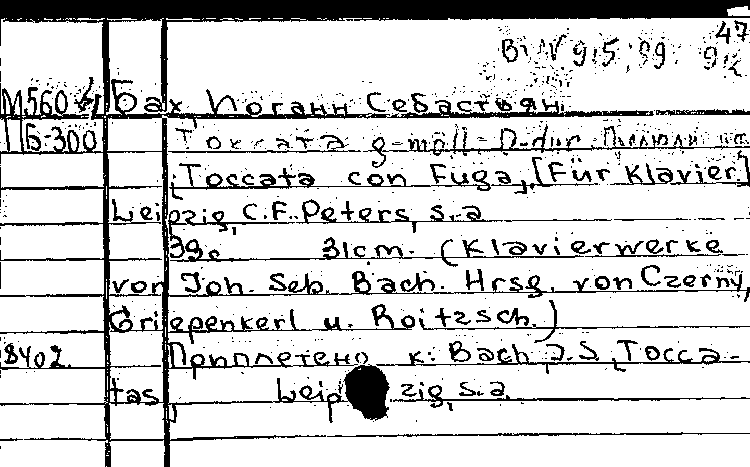 47
Bi N 9.5.99. 92
М560 Бах, Иоганн Себастьян.
ПБ-300 Токката g-moll-D-dur.
[Toccata con Fuga], [Für Klavier]
Leipzig, C.F. Peters, s.a
39с. 31cm. (Klavierwerke
von Joh. Seb. Bach. Hrsg. von Czerny,
Griepenkerl u. Roitzsch.)
8402. Приплетено к: Bach, J.S, Tocca-
tas, Leipzig, s.a.